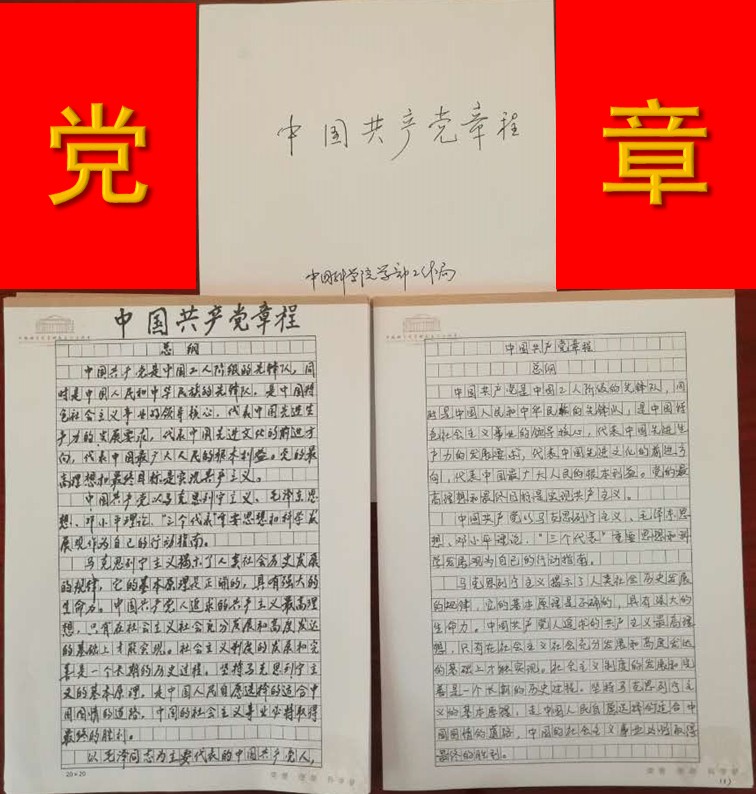 党
章
中国共产党章程
中国科学院学部工作局
中国共产党章程
总纲
中国共产党是中国工人阶级的先锋队，同
时是中国人民和中华民族的先锋队，是中国特
色社会主义事业的领导核心，代表中国先进生
产力的发展要求，代表中国先进文化的前进方
向，代表中国最广大人民的根本利益。党的最
高理想和最终目标是实现共产主义。
中国共产党以马克思列宁主义、毛泽东思
想、邓小平理论、“三个代表”重要思想和科学发
展观作为自己的行动指南。
马克思列宁主义揭示了人类社会历史发展
的规律，它的基本原理是正确的，具有强大的
生命力。中国共产党人追求的共产主义最高理
想，只有在社会主义社会充分发展和高度发达
的基础上才能实现。社会主义制度的发展和完
善是一个长期的历史过程。坚持马克思列宁主
义的基本原理，走中国人民自愿选择的适合中
国国情的道路，中国的社会主义事业必将取得
最终的胜利。
以毛泽同志为主要代表的中国共产党人，
20×20
中国共产党章程
总纲
中国共产党是中国工人阶级的先锋队，同
时是中国人民和中华民族的先锋队，是中国特
色社会主义事业的领导核心，代表中国先进生
产力的发展要求，代表中国先进文化的前进方
向，代表中国最广大人民的根本利益。党的最
高理想和最终目的是实现共产主义。
中国共产党以马克思列宁主义、毛泽东思
想、邓小平理论、“三个代表”重要思想和科
学发展观为自己的行动指南。
马克思列宁主义揭示了人类社会历史发展
的规律，它的基本原理是正确的，具有强大的
生命力。中国共产党人追求的共产主义最高理
想，只有在社会主义社会充分发展和高度发达
的基础上才能实现。社会主义制度的发展和完
善是一个长期的历史过程。坚持马克思列宁主
义的基本原理，走中国人民自愿选择的适合中
国国情的道路，中国的社会主义事业必将取得
最终的胜利。
(1)